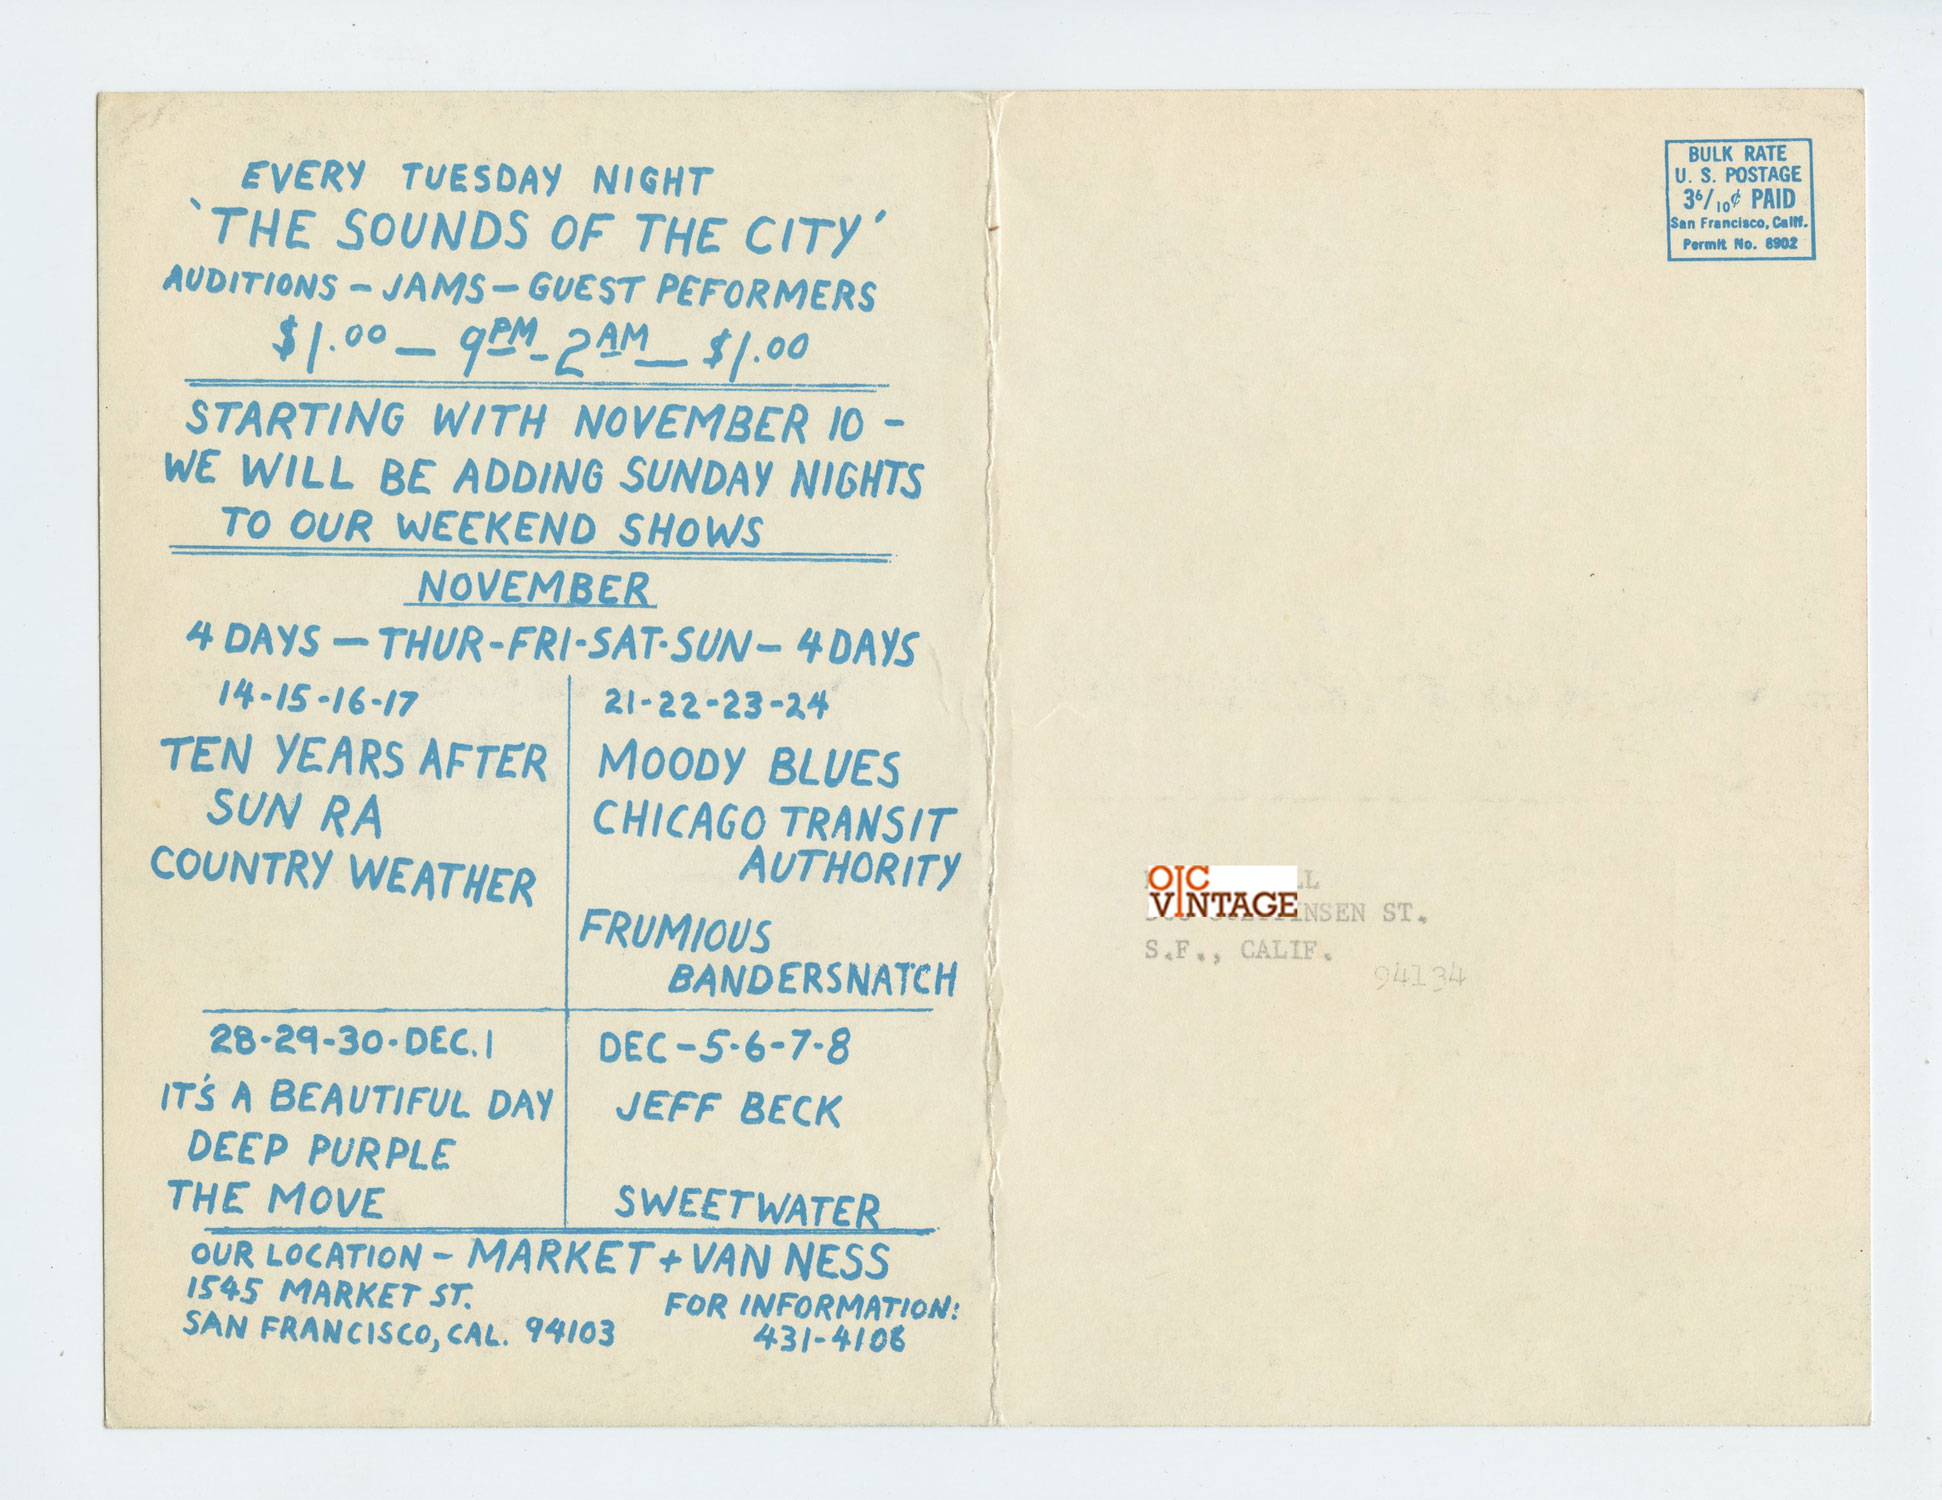 EVERY TUESDAY NIGHT
'THE SOUNDS OF THE CITY'
AUDITIONS - JAMS - GUEST PEFORMERS
$1.00 — 9PM - 2AM — $1.00
STARTING WITH NOVEMBER 10 -
WE WILL BE ADDING SUNDAY NIGHTS
TO OUR WEEKEND SHOWS
NOVEMBER
4 DAYS — THUR-FRI-SAT-SUN — 4 DAYS
14-15-16-17
TEN YEARS AFTER
SUN RA
COUNTRY WEATHER
21-22-23-24
MOODY BLUES
CHICAGO TRANSIT
AUTHORITY
FRUMIOUS
BANDERSNATCH
28-29-30-DEC.1
IT'S A BEAUTIFUL DAY
DEEP PURPLE
THE MOVE
DEC-5-6-7-8
JEFF BECK
SWEETWATER
OUR LOCATION - MARKET + VAN NESS
1545 MARKET ST.
SAN FRANCISCO, CAL. 94103
FOR INFORMATION:
431-4106
BULK RATE
U. S. POSTAGE
3 6/10¢ PAID
San Francisco, Calif.
Permit No. 8902
OJC
VINTAGE
ST.
S.F., CALIF.
94134